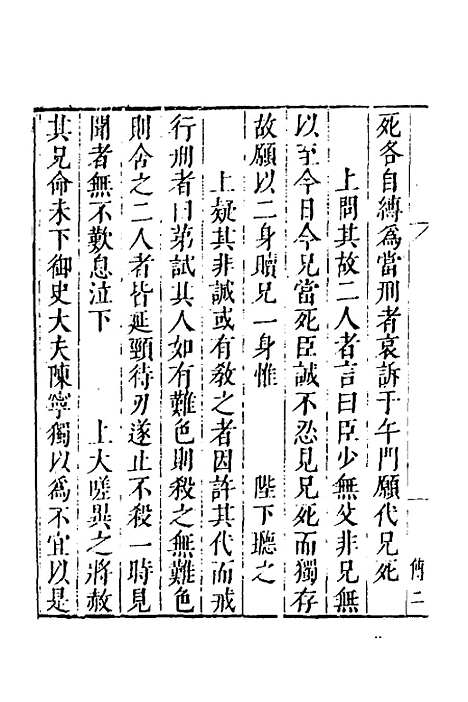 死各自縛爲當刑者哀訴于午門願代兄死
上問其故二人者言曰臣少無父非兄無
以至今日今兄當死臣誠不忍見兄死而獨存
故願以二身贖兄一身惟 陛下聽之
上疑其非誠或有敎之者因許其代而戒
行刑者曰第試其人如有難色則殺之無難色
則舍之二人者皆延頸待刃遂止不殺一時見
聞者無不歎息泣下 上大嗟異之將赦
其兄命未下御史大夫陳寧獨以爲不宜以是
傳二